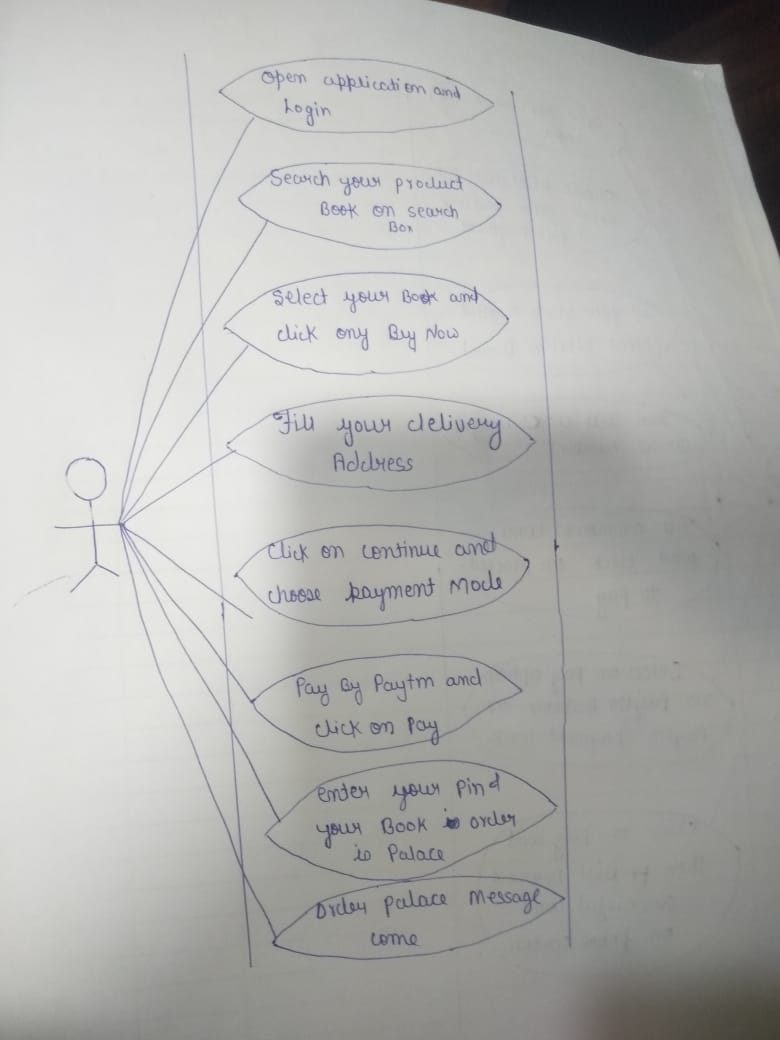 Open application and
Login
Search your product
Book on search
Box
Select your Book and
click ony Buy Now
Fill your delivery
Address
Click on continue and
choose payment Mode
Pay By Paytm and
click on Pay
enter your Pind
your Book is order
is Palace
Order Palace Message
come